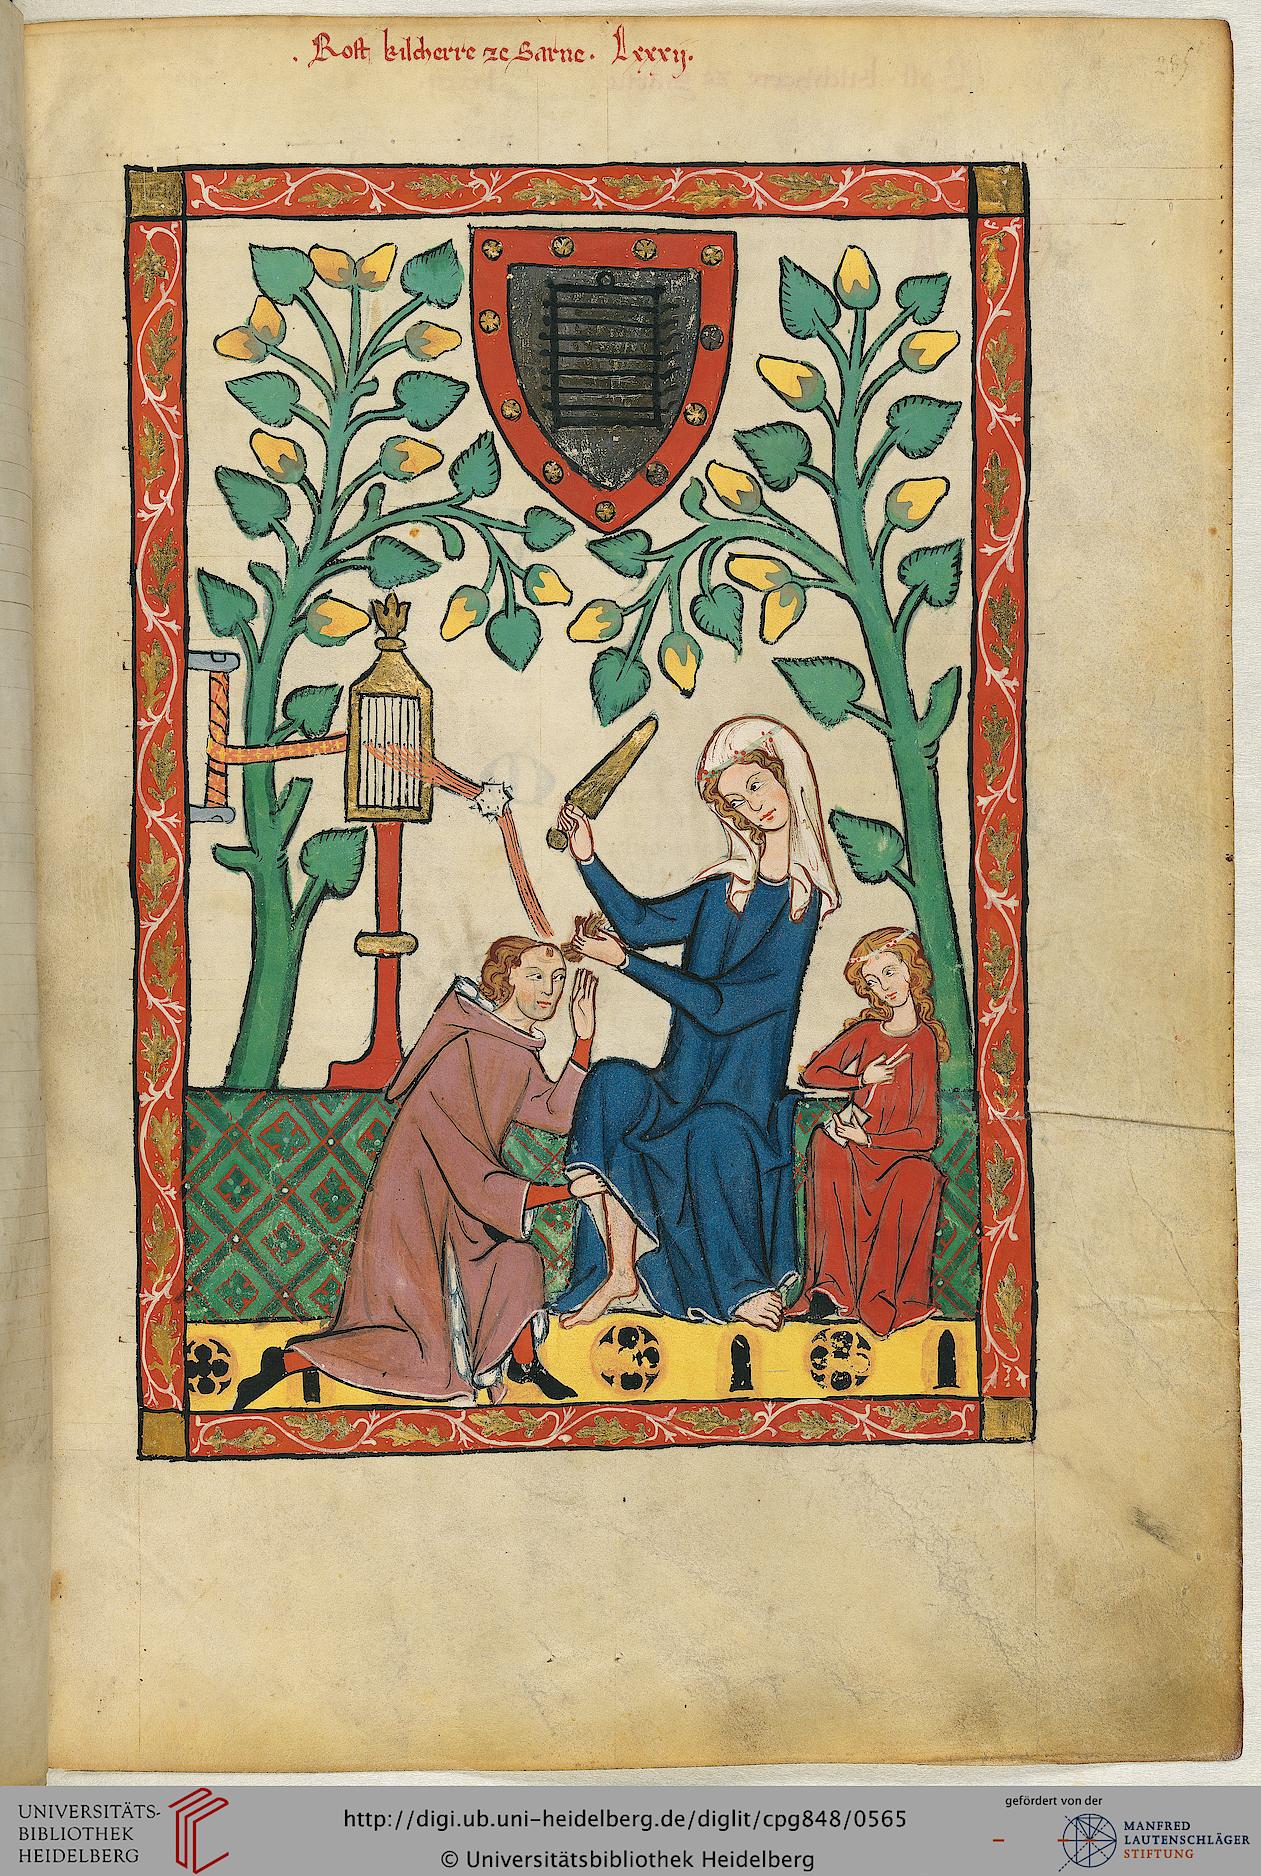 . Rost kilcherre ze Sarne. Lxxxij.
285
UNIVERSITÄTS-
BIBLIOTHEK
HEIDELBERG
http://digi.ub.uni-heidelberg.de/diglit/cpg848/0565
© Universitätsbibliothek Heidelberg
gefördert von der
MANFRED
LAUTENSCHLÄGER
STIFTUNG